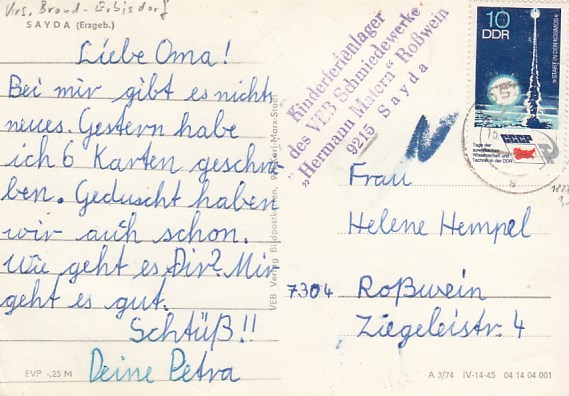 Vrs. Brand-Erbisdorf
SAYDA (Erzgeb.)
Liebe Oma!
Bei mir gibt es nichts
neues. Gestern habe
ich 6 Karten geschrie-
ben. Geduscht haben
wir auch schon.
Wie geht es Dir? Mir
geht es gut.
Schtüß!!
Deine Petra
EVP -,25 M
VEB Verlag Bildpostkarten, Karl-Marx-Stadt
Kinderferienlager
des VEB Schmiedewerke
"Hermann Matern" Roßwein
9215 Sayda
10
DDR
»START IN DEN KOSMOS«
Tage der
sowjetischen
Wissenschaft und
Technik in der DDR
Frau
Helene Hempel
7304 Roßwein
Ziegeleistr. 4
A 3/74 IV-14-45 04 14 04 001